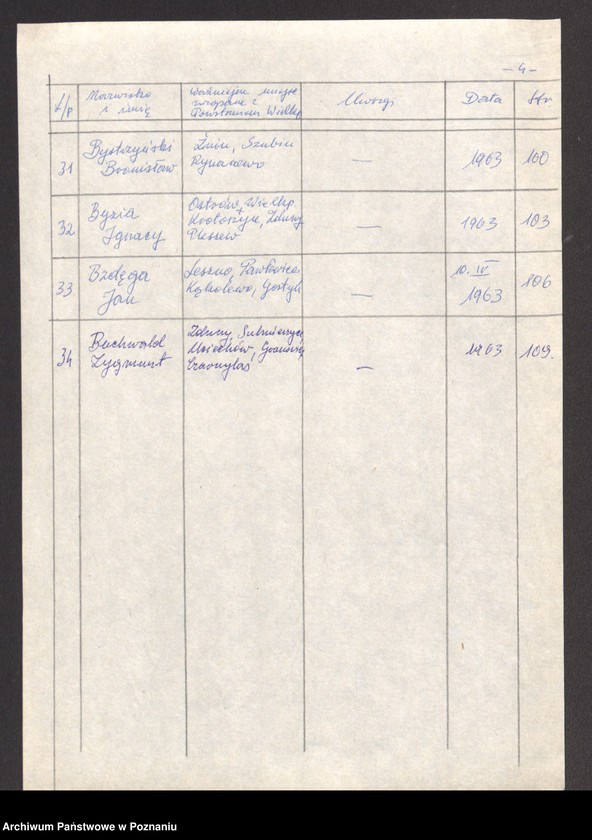 - 4 -
L/p
Nazwisko
i imię
Ważniejsze miejsc
związane z
Powstaniem Wielkp
Uwagi
Data
Str
31
Bystrzyński
Bronisław
Żnin, Szubin
Rynarzewo
—
1963
100
32
Byzia
Ignacy
Ostrów, Wielkp
Krotoszyn, Zduny
Pleszew
—
1963
103
33
Bzdęga
Jan
Leszno, Pawłowice
Kąkolewo, Gostyń
—
10. IV
1963
106
34
Buchwald
Zygmunt
Zduny, Sulmierzyce
—
1963
109.
Archiwum Państwowe w Poznaniu